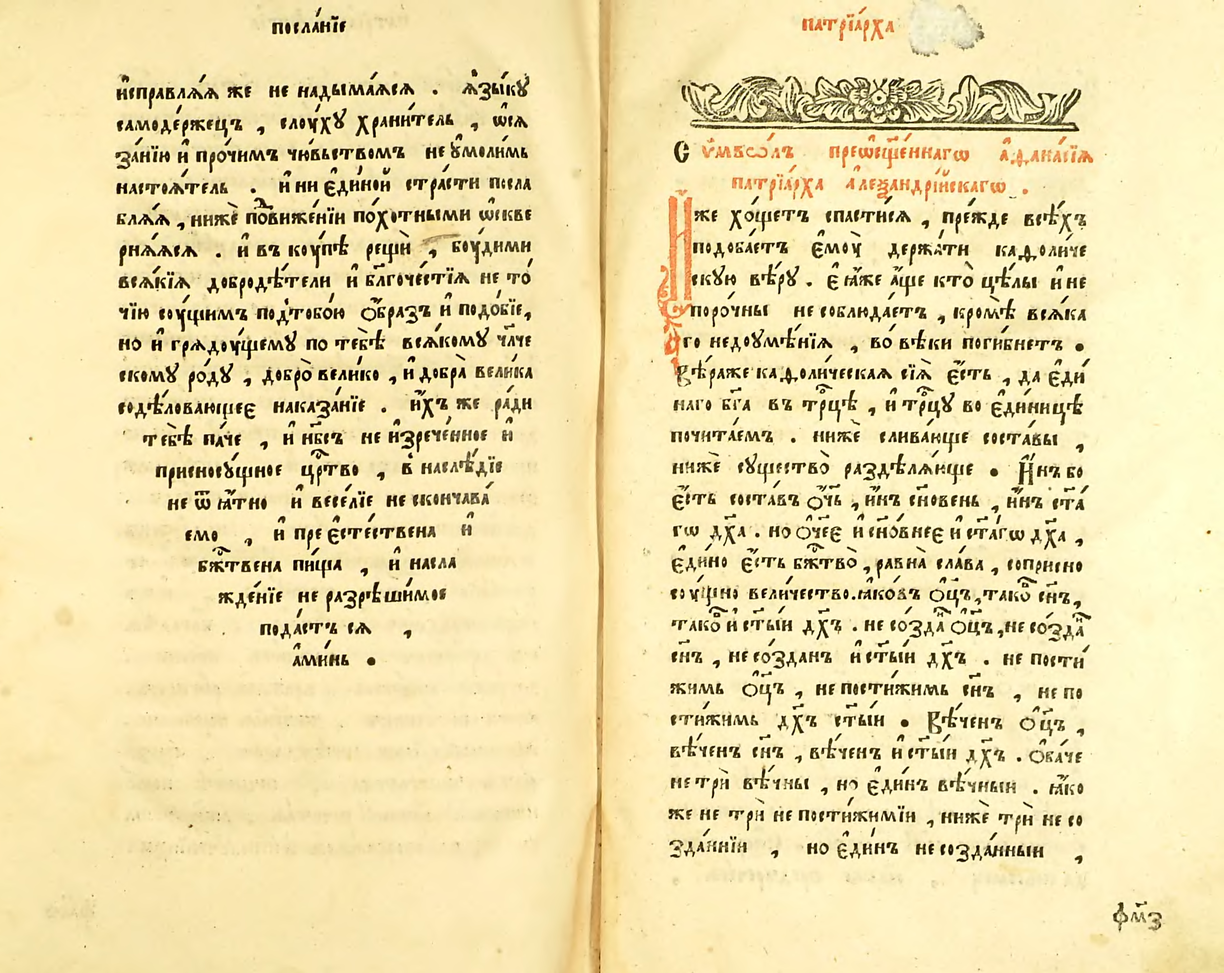 посла́нїе
и҆справлѧ́ѧ же не надыма́ѧсѧ . ѧ҆зы́кꙋ
самоде́ржецъ , слоу́хꙋ храни́тель , ѡ҆сѧ
за́нїю и҆ про́чимъ чю́вьствомъ не ᲂу҆моли́мь
настоѧ́тель . и҆ ни є҆ди́ной стра́сти посла
блѧ́ѧ , нижѐ повиже́нїи по́хотными ѡ҆скве
рнѧ́ѧсѧ . и҆ въ коу́пѣ рещѝ , боу́дими
всѧ́кїѧ добродѣ́тели и҆ бл҃гоче́стїѧ не то́
чїю соу́щимъ под̾тобо́ю ѻ҆́бразъ и҆ подо́бїе,
но и҆ грѧдоу́щемꙋ по тебѣ̀ всѧ́комꙋ чл҃че
скомꙋ ро́дꙋ , добро̀ вели́ко , и҆ добра̀ вели́ка
содѣ́ловающеє наказа́нїе . и҆́хъ же ра́ди
тебѣ̀ па́че , и҆ нб҃съ не и҆зрече́нное и҆
присносꙋ́щное црⷭ҇тво , в наслѣ́дїе
не ѿ ꙗ҆́тно и҆ весе́лїе не скончава́
емо , и҆ пре є҆сте́ствена и҆
бжⷭ҇твена пи́ща , и҆ насла
жде́нїе не разрѣши́мое
пода́стъ сѧ ,
а҆ми́нь .
патрїа́рха
Сѵ́мволъ преѡсщ҃е́ннагѡ а҆ѳана́сїѧ
патрїа́рха а҆леѯандрі́йскагѡ .
И҆́же хо́щетъ спасти́сѧ , пре́жде всѣ́хъ
подоба́етъ є҆моу̀ держа́ти каѳоли́че
скꙋю вѣ́рꙋ . є҆ ꙗ҆́же а҆́ще кто̀ цѣ́лы и҆ не
поро́чны не соблюда́етъ , кромѣ̀ всѧ́ка
го недоумѣ́нїѧ , во вѣ́ки поги́бнетъ .
Вѣ́раже каѳоли́ческаѧ сїѧ̀ є҆́сть , да є҆ди́
наго бг҃а въ трⷪ҇цѣ , и҆ трⷪ҇цꙋ во є҆ди́ницѣ
почита́емъ . нижѐ слива́юще соста́вы ,
нижѐ сꙋщество̀ раздѣлѧ́юще . И҆́нъ бо
є҆́сть соста́въ ѻ҆ч҃ь , и҆́нъ сн҃овень , и҆́нъ ст҃а́
гѡ дх҃а . но ѻ҆ч҃еє и҆ сн҃о́внеє и҆ ст҃а́гѡ дх҃а ,
є҆ди́но є҆́сть бжⷭ҇тво̀ , равна̀ сла́ва , соприсно
соу́щно вели́чество.ꙗ҆ко́въ ѻ҆ц҃ъ , тако́ⷡ сн҃ъ ,
тако́ⷡ и҆ ст҃ы́й дх҃ъ . не созда́ⷩ ѻ҆ц҃ъ , не созда́ⷩ
сн҃ъ , не со́зданъ и҆ ст҃ы́й дх҃ъ . не пости́
жимь ѻ҆ц҃ъ , не пости́жимь сн҃ъ , не по
сти́жимь дх҃ъ ст҃ы́й . Вѣ́ченъ ѻ҆ц҃ъ ,
вѣ́ченъ сн҃ъ , вѣ́ченъ и҆ ст҃ы́й дх҃ъ . Ѻ҆ба́че
не трѝ вѣ́чны , но є҆ди́нъ вѣ́чный . ꙗ҆́ко
же не трѝ не постижи́мїи , нижѐ трѝ не со
зда́ннїи , но є҆ди́нъ несозда́нный ,
фм҃з